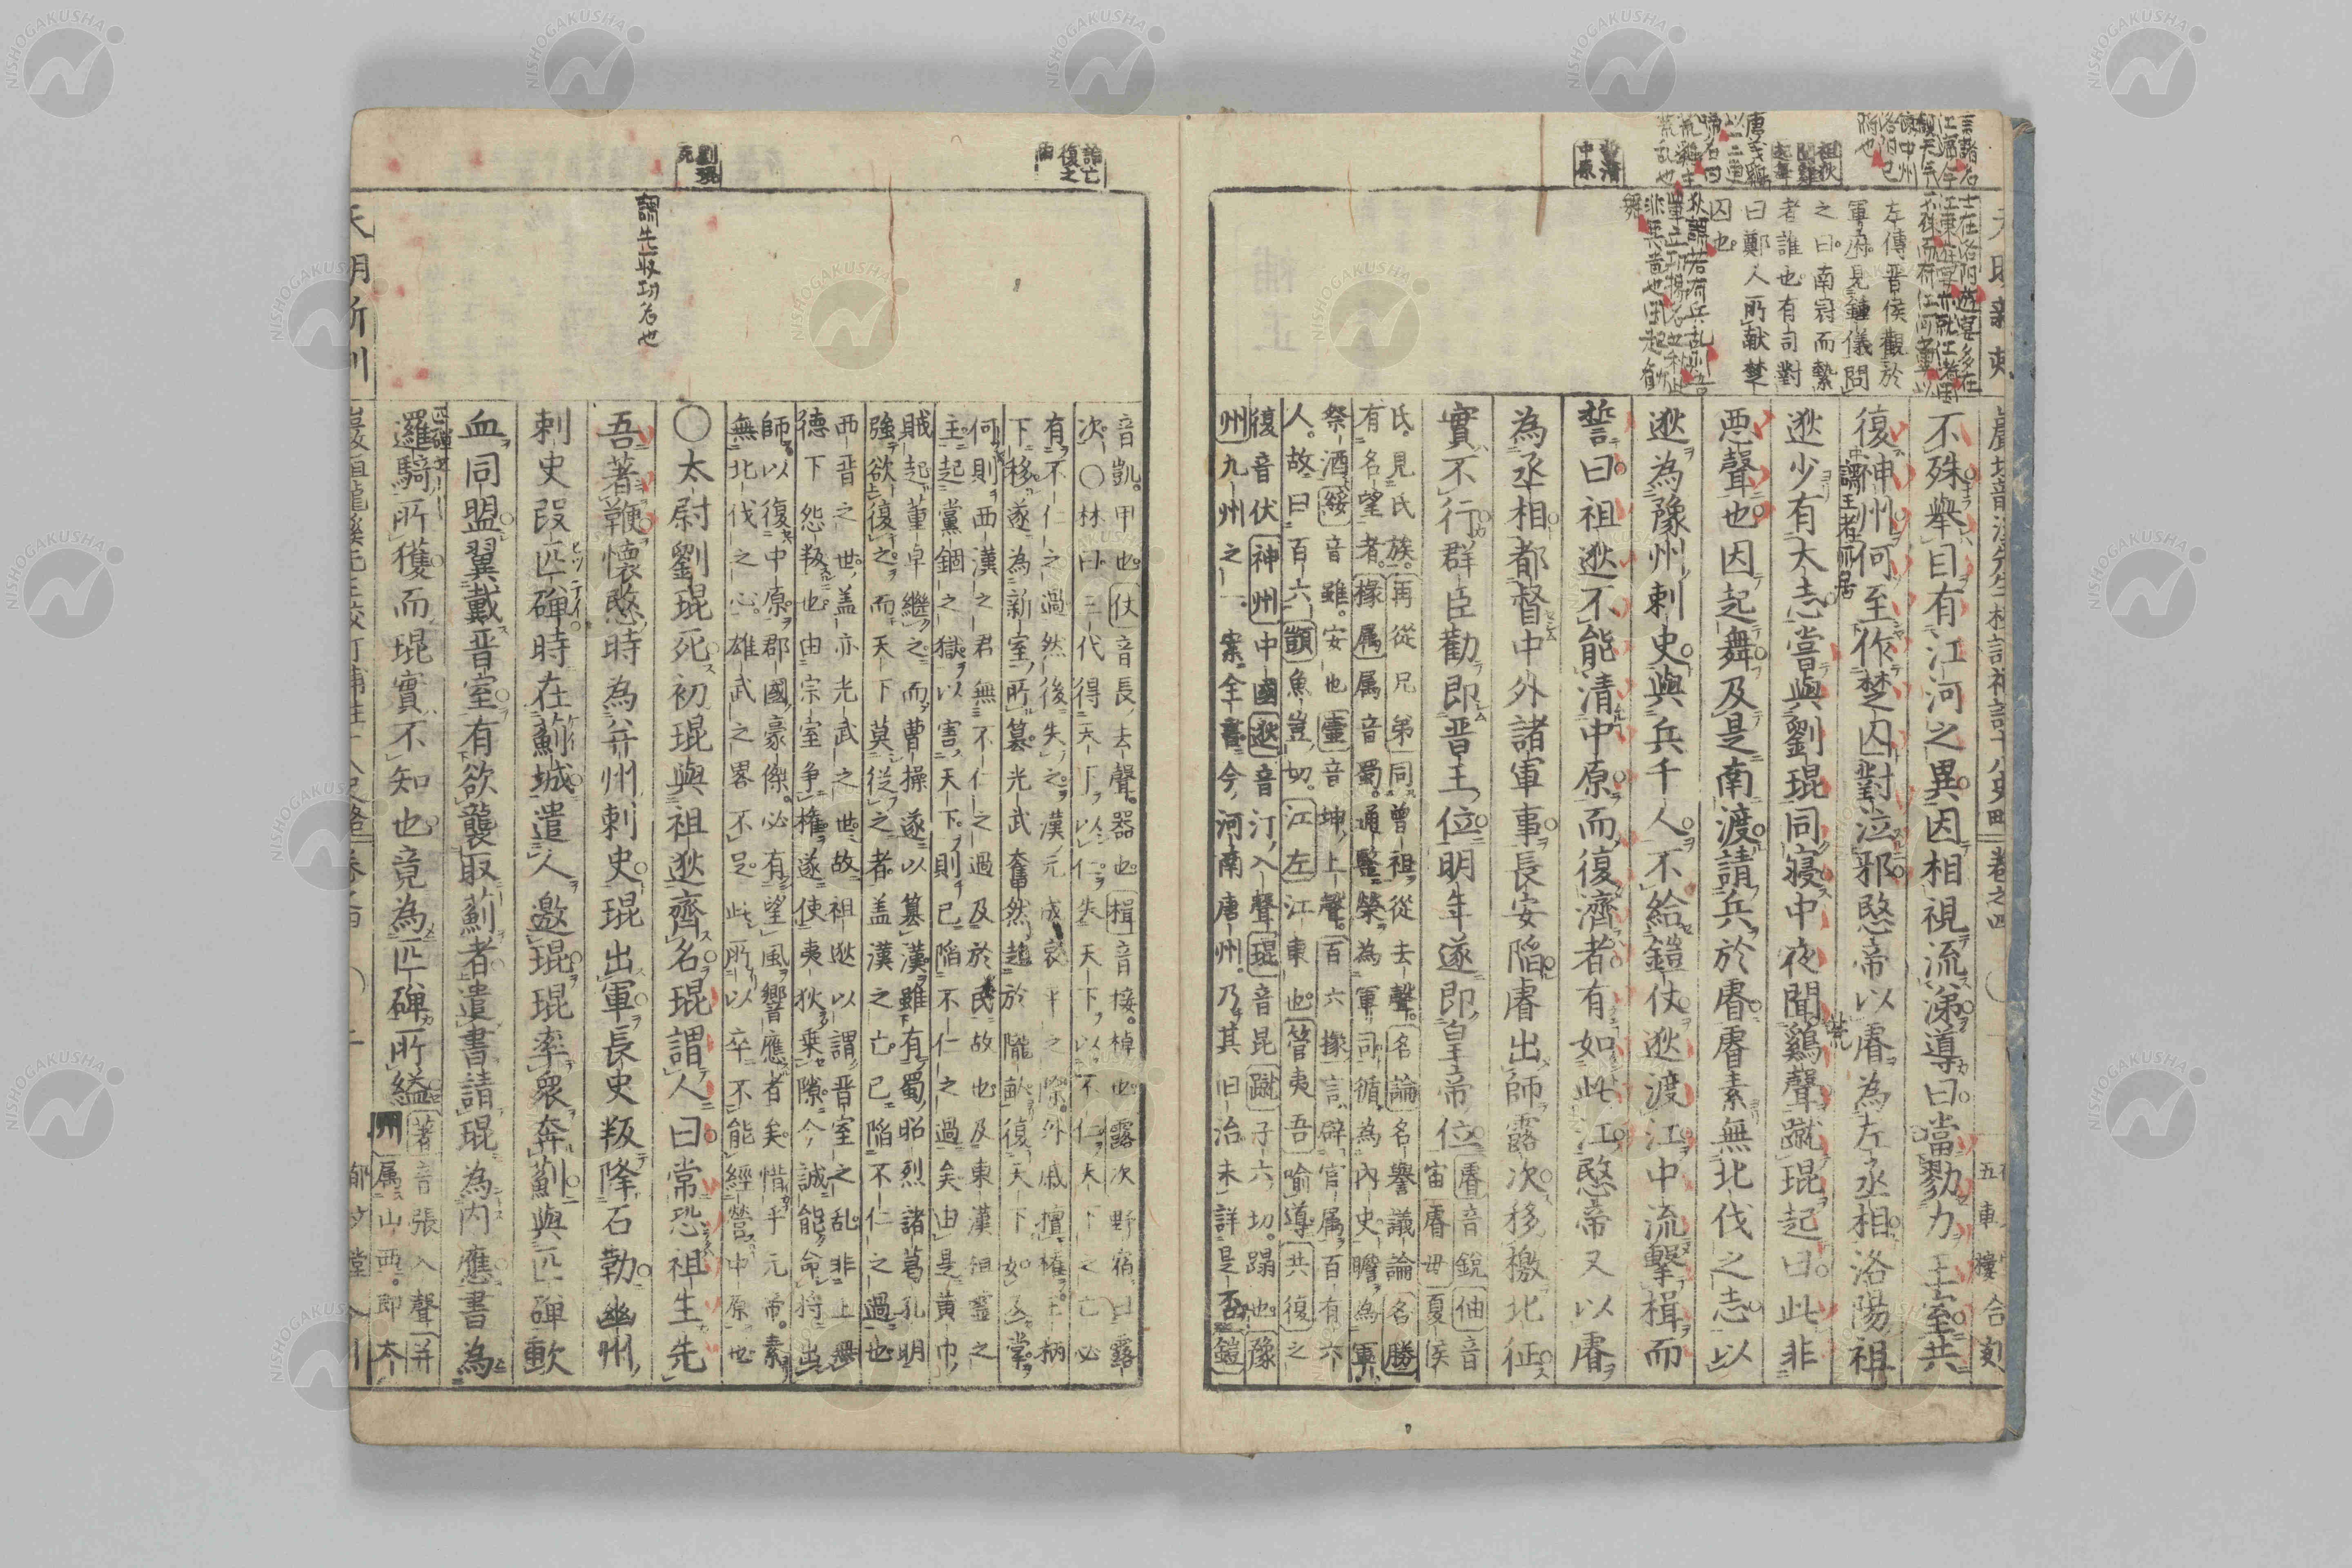 不殊擧目有江河之異因相視流涕導曰當勠力王室共
復神州何至作楚囚對泣邪愍帝以睿為左丞相洛陽祖
逖少有大志嘗與劉琨同寝中夜聞鷄聲蹴琨起曰此非
悪聲也因起舞及是南渡請兵於睿睿素無北伐之志以
逖為豫州刺史與兵千人不給鎧仗逖渡江中流擊楫而
誓曰祖逖不能清中原而復濟者有如此江愍帝又以睿
為丞相都督中外諸軍事長安陥睿出師露次移檄北征
實不行群臣勸即晋王位明年遂即皇帝位
睿音銳伷音
宙睿毋夏侯
氏見氏族再從兄弟同曾祖從去聲名論名譽議論名勝
有名望者掾属属音蜀通鑒榮為軍司循為內史瞻為軍
祭酒綏音雖安也壼音坤上聲百六掾言辟官属百有六
人故曰百六顗魚豈切江左江東也管夷吾喻導共復之
復音伏神州中國逖音汀入聲琨音昆蹴子六切蹋也豫
州九州之一案全書今河南唐州乃其旧治未詳是否鎧
音凱甲也仗音長去聲器也楫音椄棹也露次野宿曰露
次○林曰三代得天下以仁失天下以不仁天下之亡必
有不仁之過然後失之漢元成哀平之際外戚擅權王柄
下移遂為新室所簒光武奮然起於隴畝復天下如反掌
何則西漢之君無不仁之過及於民故也及東漢祖霊之
主起黨錮之獄以害天下則已陥不仁之過矣由是黄巾
賊起董卓継之而曹操遂以簒漢雖有蜀昭烈諸葛孔明
強欲復之而天下莫従之者盖漢之亡已陥不仁之過也
西晋之世盖亦光武之世故祖逖以謂晋室之乱非上無
德下怨叛也由宗室争權遂使夷狄乗隙今誠能命将出
師以復中原郡國豪傑必有望風響應者矣惜乎元帝素
無北伐之心雄武之畧不足此所以卒不能經營中原也
○太尉劉琨死初琨與祖逖齊名琨謂人曰常恐祖生先
吾著鞭懷愍時為幷州刺史琨出軍長史叛降石勒幽州
刺史段匹磾時在薊城遣人邀琨琨率衆奔薊與匹磾歃
血同盟翼戴晋室有欲襲取薊者遺書請琨為内應書為
邏騎所獲而琨實不知也竟為匹磾所縊
著音張入聲幷
州属山西即太
左傳晋侯觀於
軍府見鍾儀問
之曰南冠而縶
者誰也有司對
曰鄭人所献楚
囚也
誓清
中原
劉琨
死
論亡
復之
由
謂先收功名也
謂王者所居